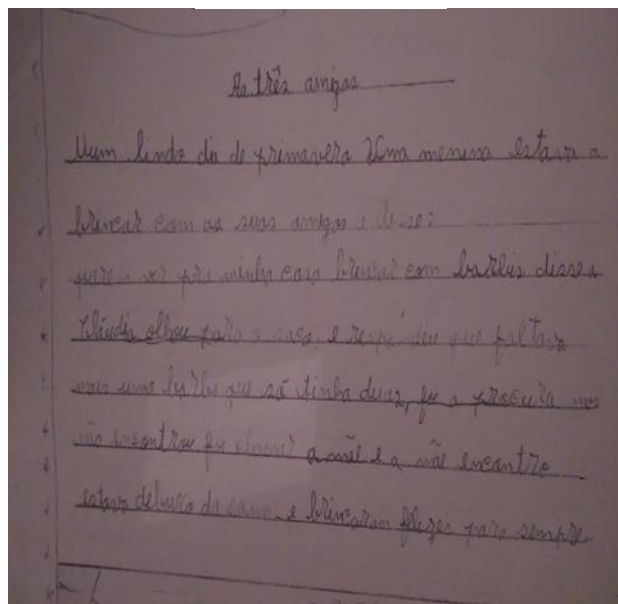 As três amigas
Num lindo dia de primavera Uma menina estava a
brincar com as suas amigas e disse:
ver pra minha casa brincar com barbis disse a
Cláudia olhou para o saco, e respondeu que faltava
mais uma barbi que só tinha duas, fu a procura mas
não encontrou fu chamar a mãe e a mãe encantro
estava debuxo da cama, e brincaram felizes para sempre.